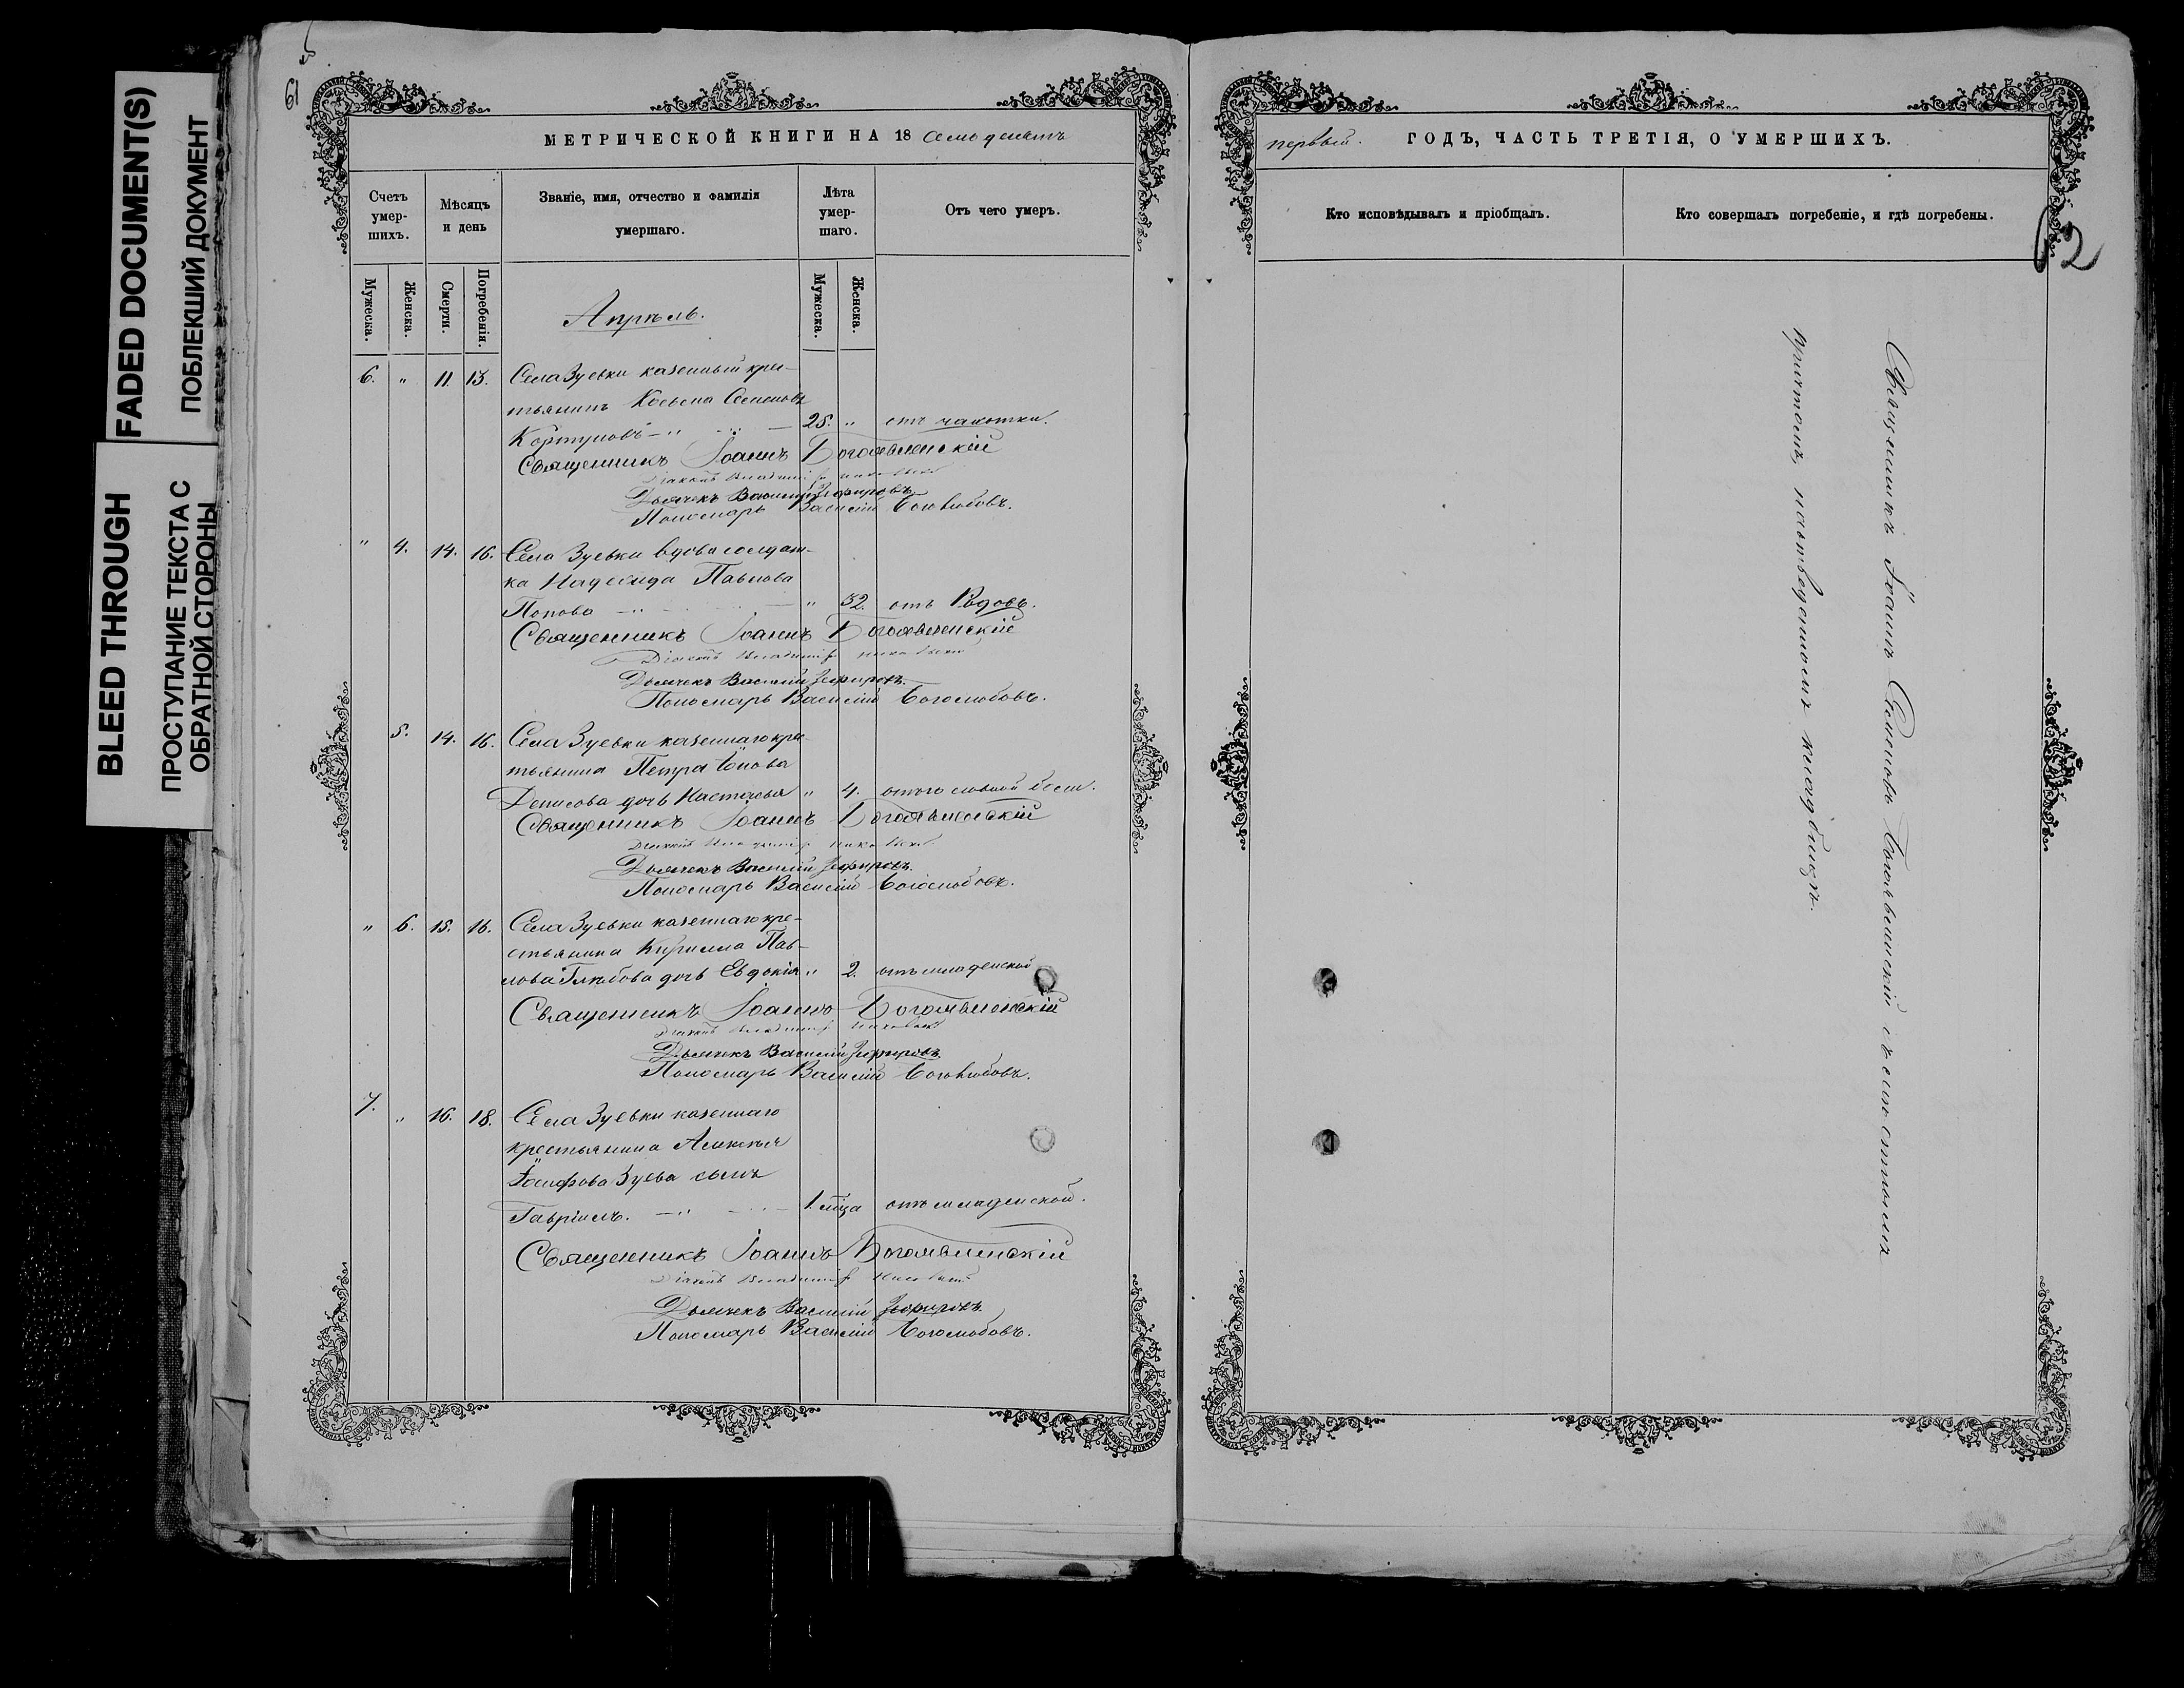 FADED DOCUMENT(S)
ПОБЛЕКШИЙ ДОКУМЕНТ
BLEED THROUGH
ПРОСТУПАНИЕ ТЕКСТА С
ОБРАТНОЙ СТОРОНЫ
61
МЕТРИЧЕСКОЙ КНИГИ НА 18 семьдесятъ
Счетъ умер-шихъ.
Мѣсяцъ и день
Званіе, имя, отчество и фамилія умершаго.
Лѣта умер-шаго.
Отъ чего умеръ.
Мужеска.
Женска.
Смерти.
Погребенія.
Мужеска.
Женска.
Апрѣль.
6. " 11. 13. Села Зуевки казенный крес-
тьянинъ Косьма Семеновъ
Кортуновъ 25. " отъ чахотки.
Священникъ Іоаннъ Богоявленскій
Діаконъ
Дьячекъ Василій Зефировъ
Пономарь Василій Боголюбовъ.
" 4. 14. 16. Села Зуевки вдова солдат-
ка Надежда Павлова
Попова " 32. отъ Родовъ.
Священникъ Іоаннъ Богоявленскій
Діаконъ
Дьячекъ Василій Зефировъ.
Пономарь Василій Боголюбовъ.
5. 14. 16. Села Зуевки казеннаго крес-
тьянина Петра
Денисова дочь Настасья " 4. отъ головной болѣ.
Священникъ Іоаннъ Богоявленскій
Діаконъ
Дьячекъ Василій Зефировъ.
Пономарь Василій Боголюбовъ.
" 6. 15. 16. Села Зуевки казеннаго кре-
стьянина Кирилла Пав-
лова Глѣбова дочь Евдокія " 2. отъ младенской
Священникъ Іоаннъ Богоявленскій
Діаконъ
Дьячекъ Василій Зефировъ
Пономарь Василій Боголюбовъ.
7. " 16. 18. Села Зуевки казеннаго
крестьянина Алексѣя
Іосифова Зуева сынъ
Гавріилъ. 1. мца отъ младенской.
Священникъ Іоаннъ Богоявленскій
Діаконъ
Дьячекъ Василій Зефировъ
Пономарь Василій Боголюбовъ.
первый. ГОДЪ, ЧАСТЬ ТРЕТІЯ, О УМЕРШИХЪ.
Кто исповѣдывалъ и пріобщалъ.
Кто совершалъ погребеніе, и гдѣ погребены.
62
Священникъ Іоаннъ Семеновъ Богоявленскій съ
причтомъ, на отведенномъ кладбищѣ.